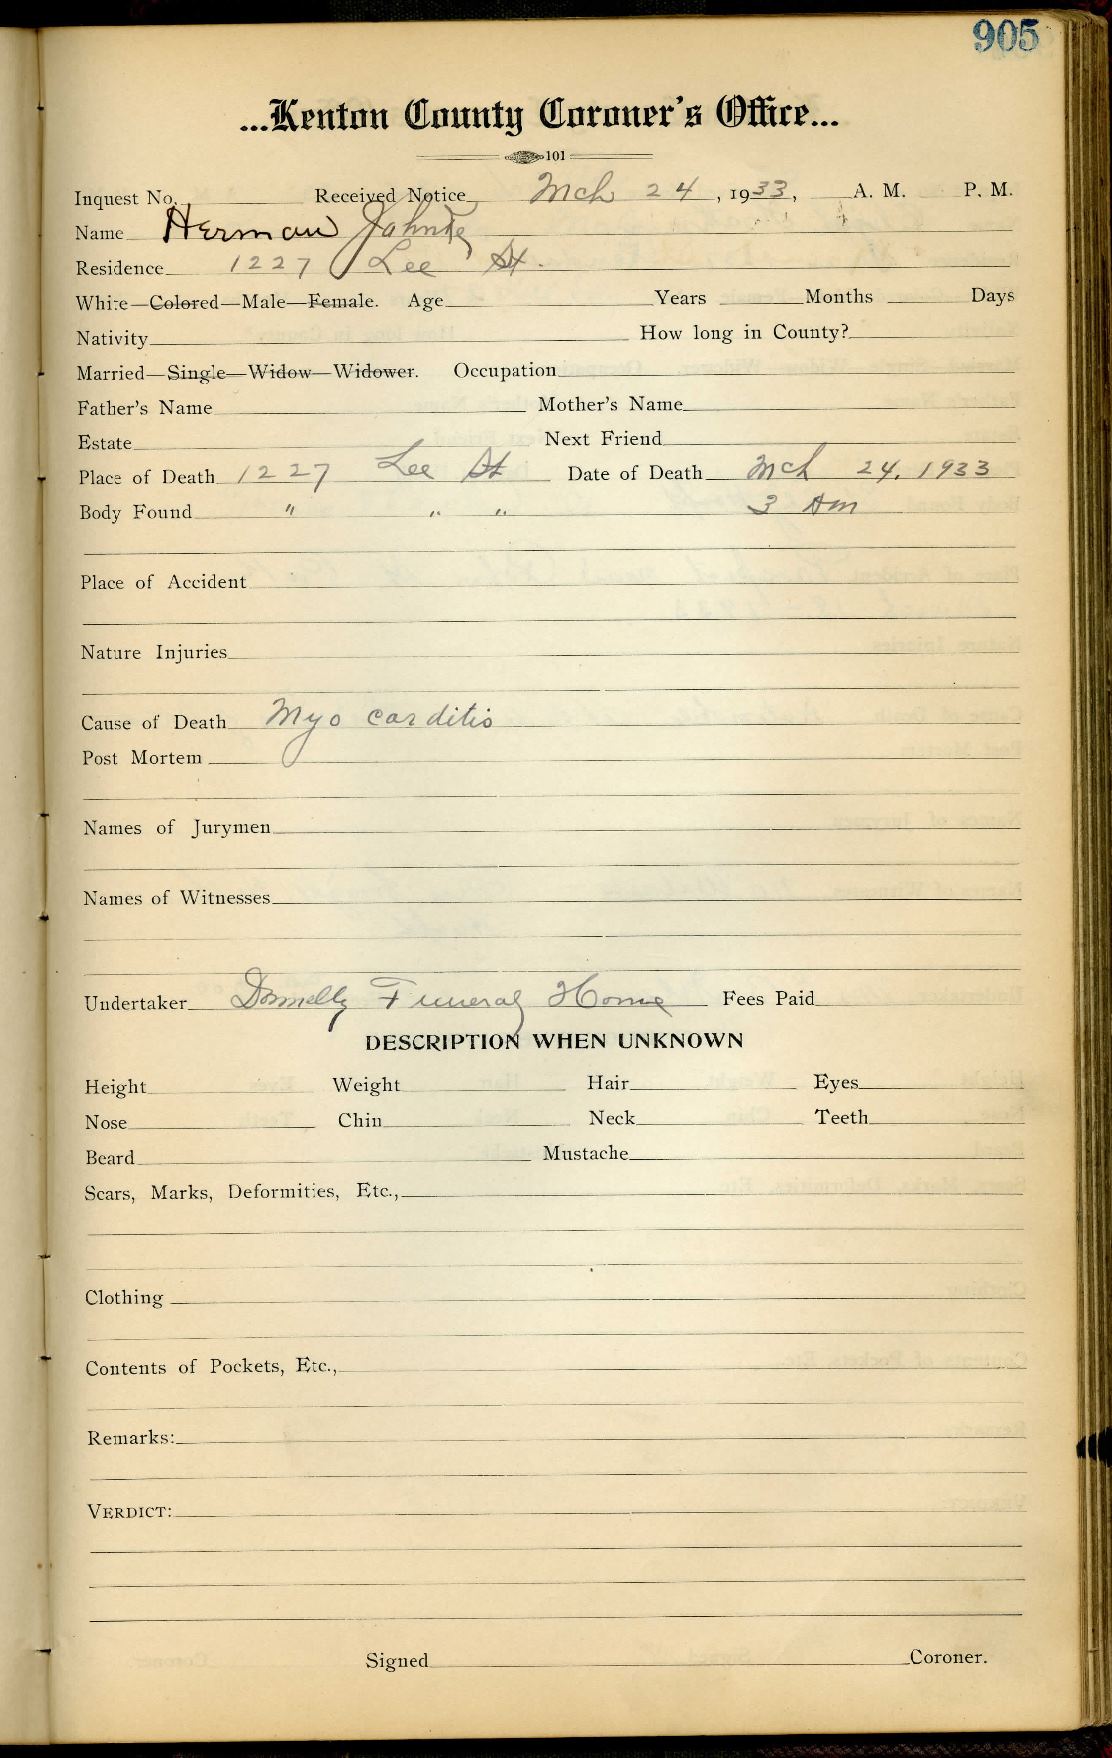 905
...Kenton County Coroner's Office...
101
Inquest No. Received Notice Mch 24, 1933, A. M. P. M.
Name Herman Jahnke
Residence 1227 Lee St.
White—Colored—Male—Female. Age Years Months Days
Nativity How long in County?
Married—Single—Widow—Widower. Occupation
Father's Name Mother's Name
Estate Next Friend
Place of Death 1227 Lee St Date of Death Mch 24, 1933
Body Found " " " 3 Am
Place of Accident
Nature Injuries
Cause of Death Myo carditis
Post Mortem
Names of Jurymen
Names of Witnesses
Undertaker Donnelly Funeral Home Fees Paid
DESCRIPTION WHEN UNKNOWN
Height Weight Hair Eyes
Nose Chin Neck Teeth
Beard Mustache
Scars, Marks, Deformities, Etc.,
Clothing
Contents of Pockets, Etc.,
Remarks:
VERDICT:
Signed Coroner.